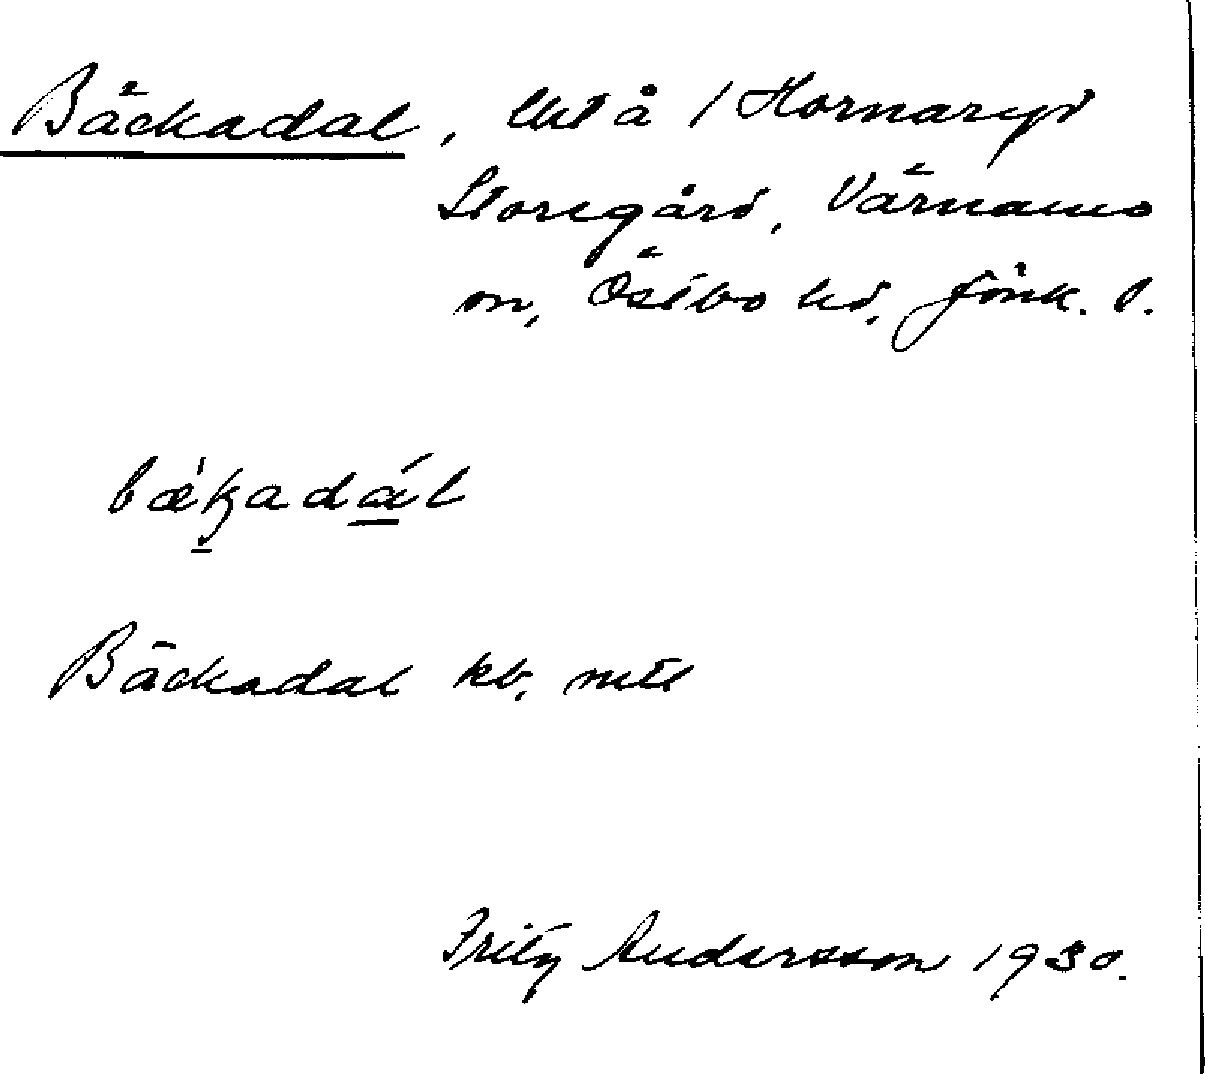 Bäckadal, lht å 1 Hornaryd
Storegård, Värnamo
sn, Östbo hd, Jönk. l.
bækadál
Bäckadal kb, mtl
Fritz Andersson 1930.